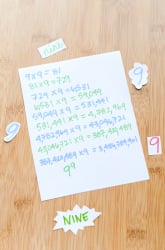 nine
9
9×9 = 81
81×9 = 729
729 ×9 = 6561
6561 ×9 = 59,049
59,049 ×9 = 531,441
531,441 ×9 = 4,782,969
4782969 ×9 = 43,046,721
43,046,721 ×9 = 387,420,489
387,420,489 ×9 = 3,486,784,401
9
9
99
NINE